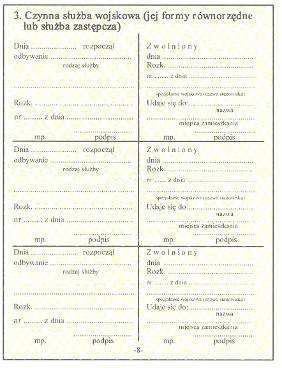 3. Czynna służba wojskowa (jej formy równorzędne
lub służba zastępcza)
Dnia .................... rozpoczął
odbywanie ....................
rodzaj służby
....................
Rozk. ....................
nr ........ z dnia ....................
mp. podpis
Zwolniony
dnia ....................
Rozk. ....................
nr ........ z dnia ....................
....................
Udaje się do: ....................
nazwa
miejsca zamieszkania
mp. podpis
Dnia .................... rozpoczął
odbywanie ....................
rodzaj służby
....................
Rozk. ....................
nr ........ z dnia ....................
mp. podpis
Zwolniony
dnia ....................
Rozk. ....................
nr ........ z dnia ....................
....................
Udaje się do: ....................
nazwa
miejsca zamieszkania
mp. podpis
Dnia .................... rozpoczął
odbywanie ....................
rodzaj służby
....................
Rozk. ....................
nr ........ z dnia ....................
mp. podpis
Zwolniony
dnia ....................
Rozk. ....................
nr ........ z dnia ....................
....................
Udaje się do: ....................
nazwa
miejsca zamieszkania
mp. podpis
-8-